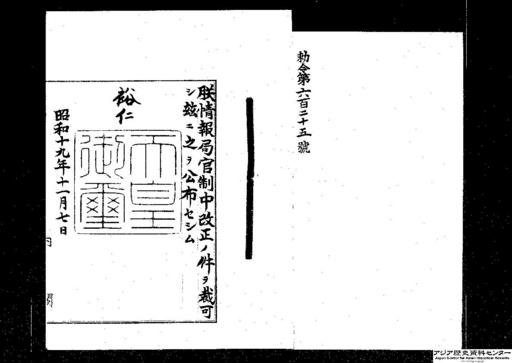 勅令第六百二十五號
朕情報局官制中改正ノ件ヲ裁可
シ茲ニ之ヲ公布セシム
裕仁
天皇御璽
昭和十九年十一月七日
内閣
アジア歴史資料センター
Japan Center for Asian Historical Records